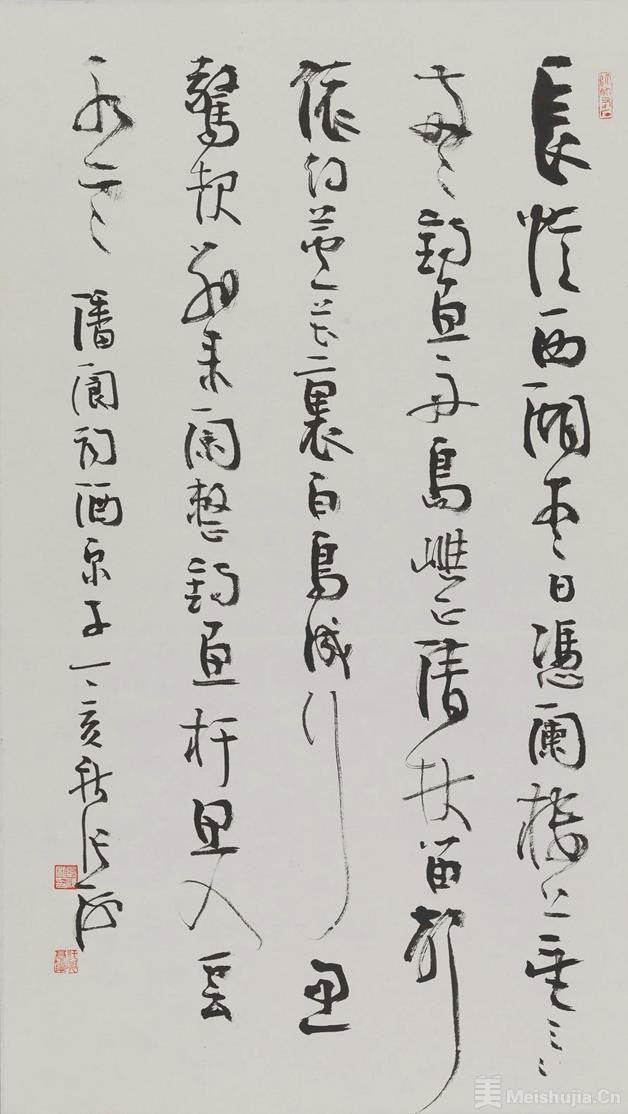 長憶西湖盡日憑闌樓上望三三
兩兩釣魚舟島嶼正清秋笛聲
依約蘆花裏白鳥成行忽
驚起別來閑整釣魚杆思入雲
水寒 潘閬詞酒泉子 丁亥秋張
美 Meishujia.Cn